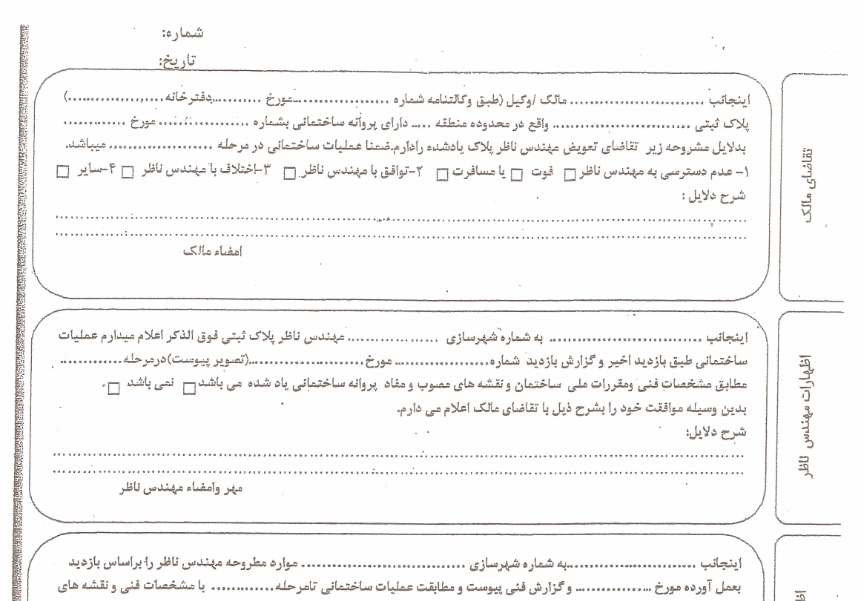 شماره:
تاریخ:
تقاضای مالک
اینجانب .......................... مالک /وکیل (طبق وکالتنامه شماره ..................مورخ ..........دفترخانه..................)
پلاک ثبتی .......................... واقع در محدوده منطقه ..... دارای پروانه ساختمانی بشماره ................. مورخ ............
بدلایل مشروحه زیر تقاضای تعویض مهندس ناظر پلاک یادشده رادارم.ضمنا عملیات ساختمانی در مرحله .................... میباشد.
۱- عدم دسترسی به مهندس ناظر □ فوت □ یا مسافرت □ ۲-توافق با مهندس ناظر □ ۳-اختلاف با مهندس ناظر □ ۴-سایر □
شرح دلایل :
امضاء مالک
اظهارات مهندس ناظر
اینجانب ............................. به شماره شهرسازی .................. مهندس ناظر پلاک ثبتی فوق الذکر اعلام میدارم عملیات
ساختمانی طبق بازدید اخیر و گزارش بازدید شماره.................... مورخ......................(تصویر پیوست)درمرحله.............
مطابق مشخصات فنی ومقررات ملی ساختمان ونقشه های مصوب و مفاد پروانه ساختمانی یاد شده می باشد □ نمی باشد □.
بدین وسیله موافقت خود را بشرح ذیل با تقاضای مالک اعلام می دارم.
شرح دلایل:
مهر وامضاء مهندس ناظر
اینجانب ..........................به شماره شهرسازی ............................... موارد مطروحه مهندس ناظر را براساس بازدید
بعمل آورده مورخ ............... و گزارش فنی پیوست و مطابقت عملیات ساختمانی تامرحله............. با مشخصات فنی و نقشه های